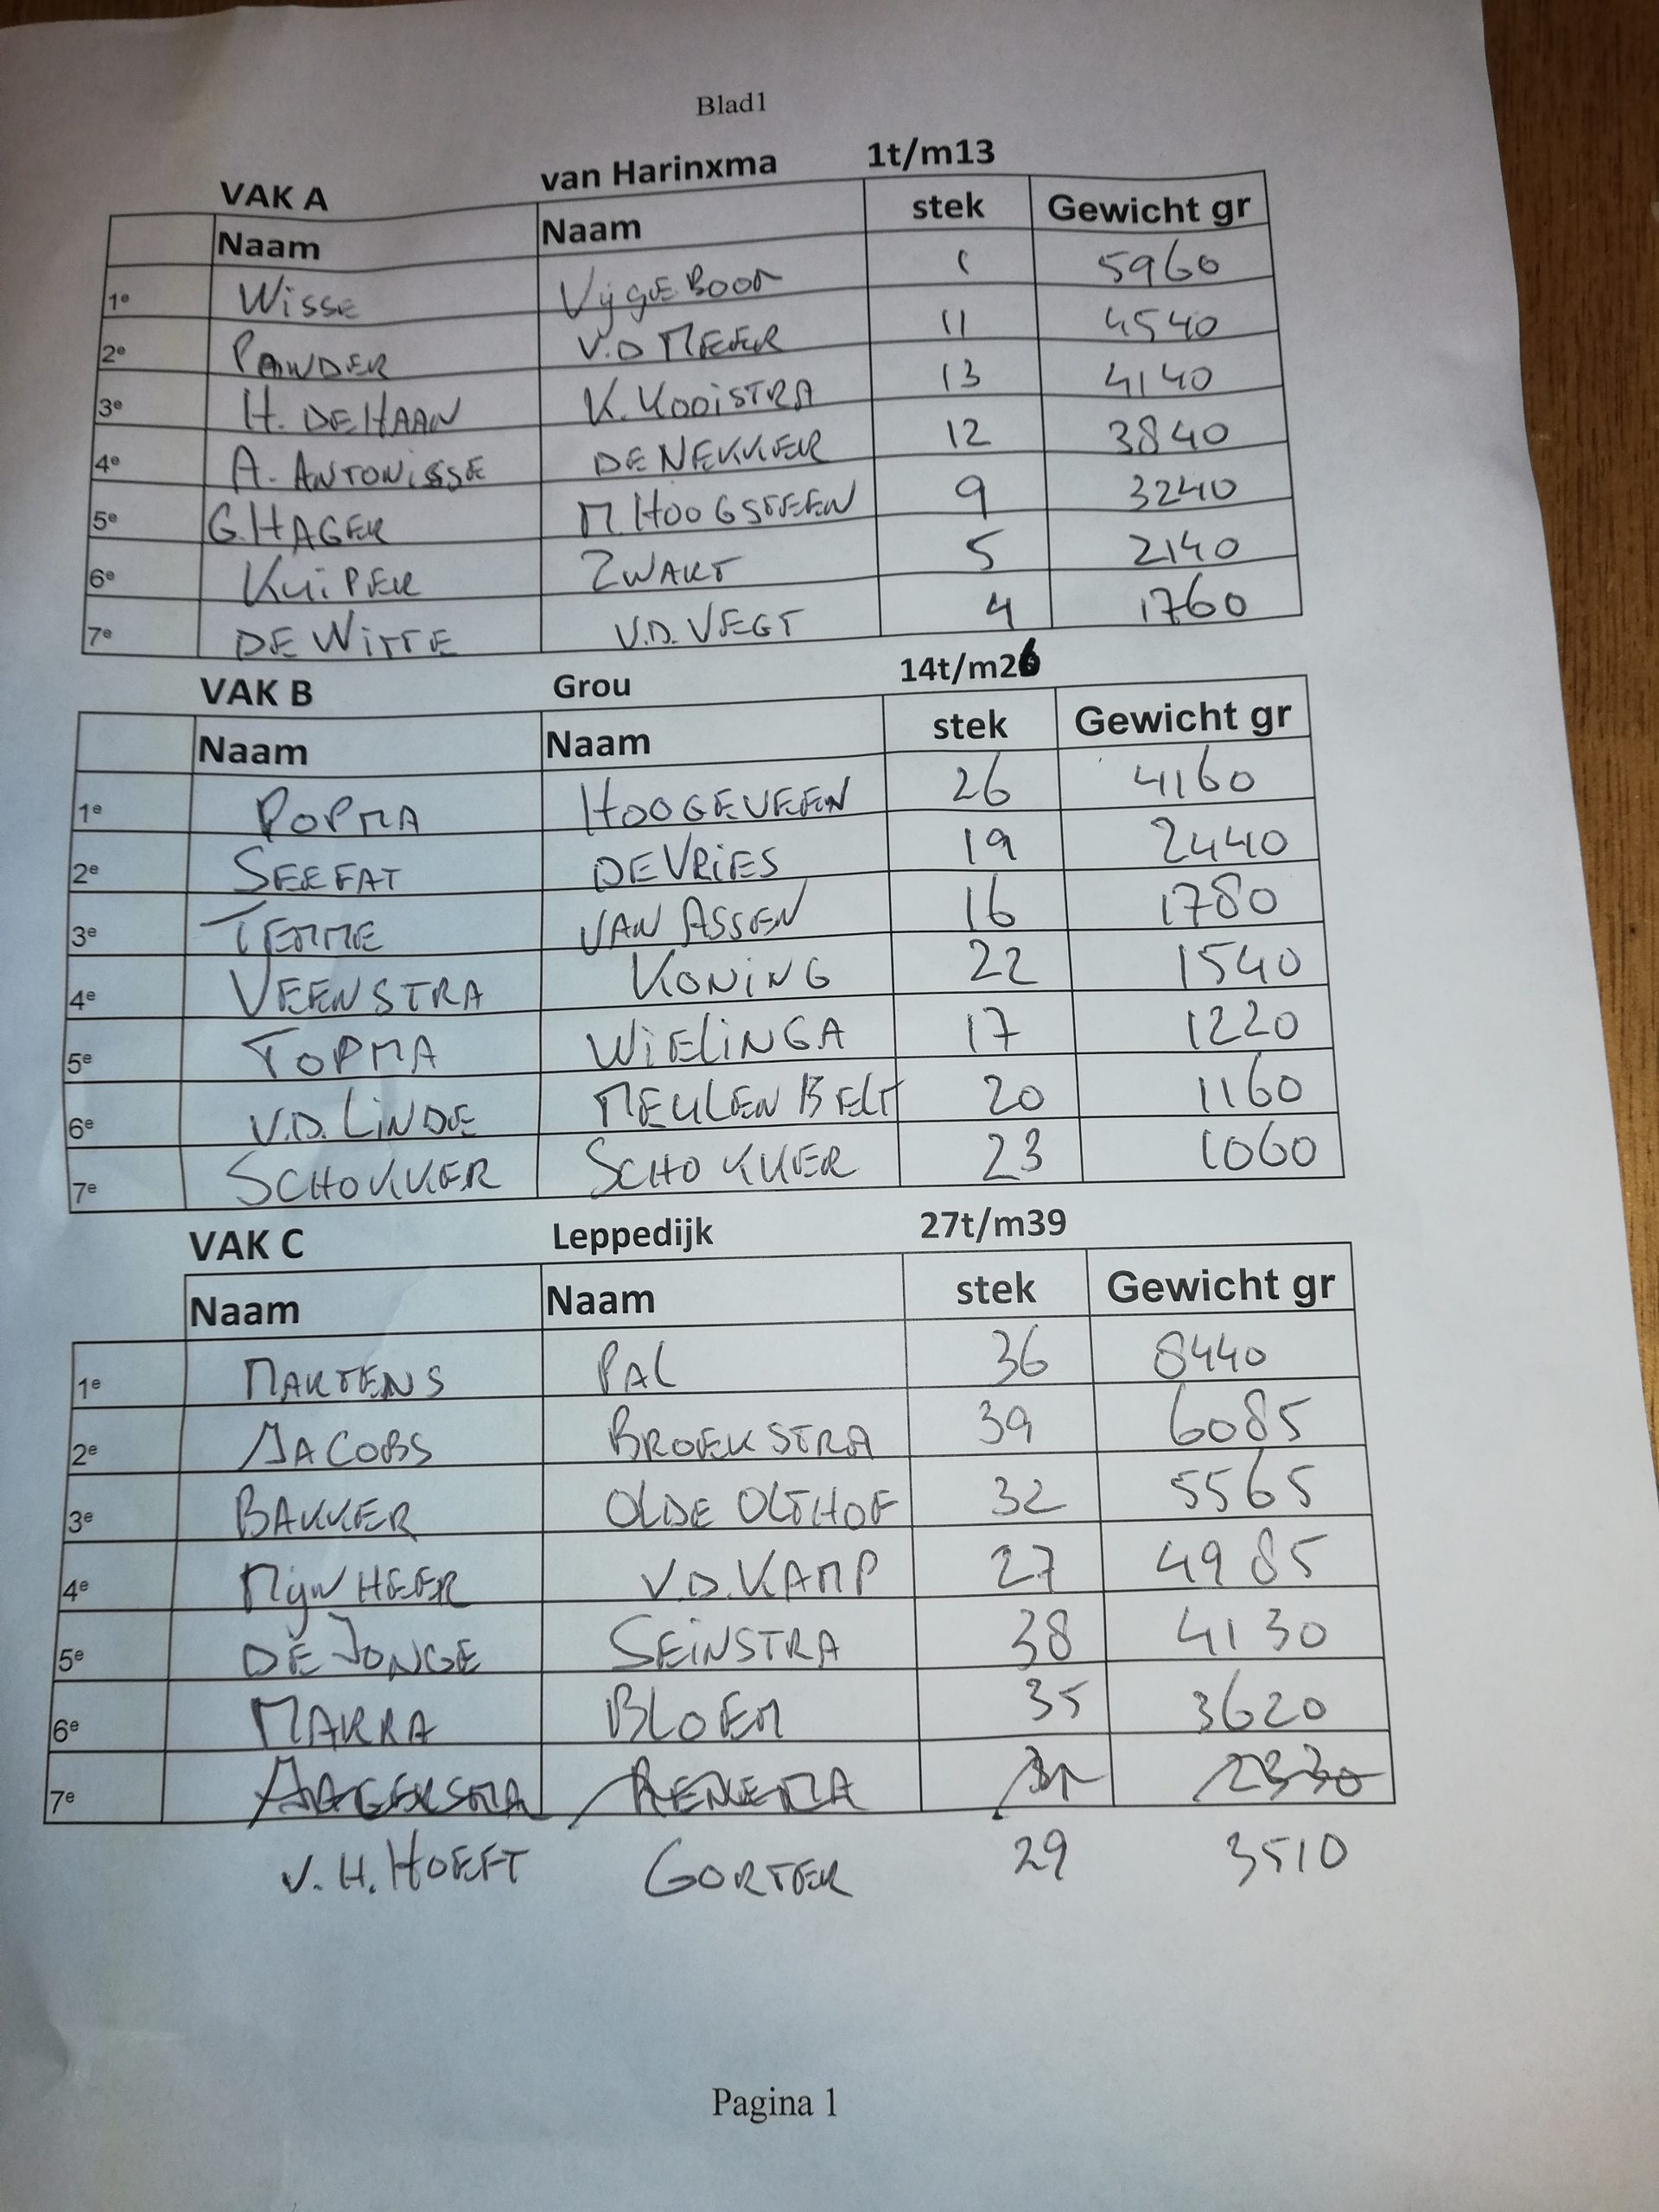 Blad1
VAK A van Harinxma 1t/m13
Naam Naam stek Gewicht gr
1e Wisse VijgeBoom 1 5960
2e PAWDER V.D MEER 11 4540
3e H. DE HAAN K. KOOiSTRA 13 4140
4e A. ANTONiSSE DE NEKKER 12 3840
5e G. HAGER M. HOOGSTEEN 9 3240
6e KUiPER ZWART 5 2140
7e DE WiTTE V.D. VEGT 4 1760
VAK B Grou 14t/m26
Naam Naam stek Gewicht gr
1e POPMA HOOGEVEEN 26 4160
2e SEEFAT DE VRiES 19 2440
3e TEMME VAN ASSEN 16 1780
4e VEENSTRA KONiNG 22 1540
5e TOPMA WiELiNGA 17 1220
6e V.D. LiNDE MEULENBELT 20 1160
7e SCHOKKER SCHOKKER 23 1060
VAK C Leppedijk 27t/m39
Naam Naam stek Gewicht gr
1e MARTENS PAL 36 8440
2e JACOBS BROEKSTRA 39 6085
3e BAKKER OLDE OLTHOF 32 5565
4e MijNHEER V.D. KAMP 27 4985
5e DE JONGE SEiNSTRA 38 4130
6e MARRA BLOEM 35 3620
7e 2330
V. H. HOEFT GORTER 29 3510
Pagina 1